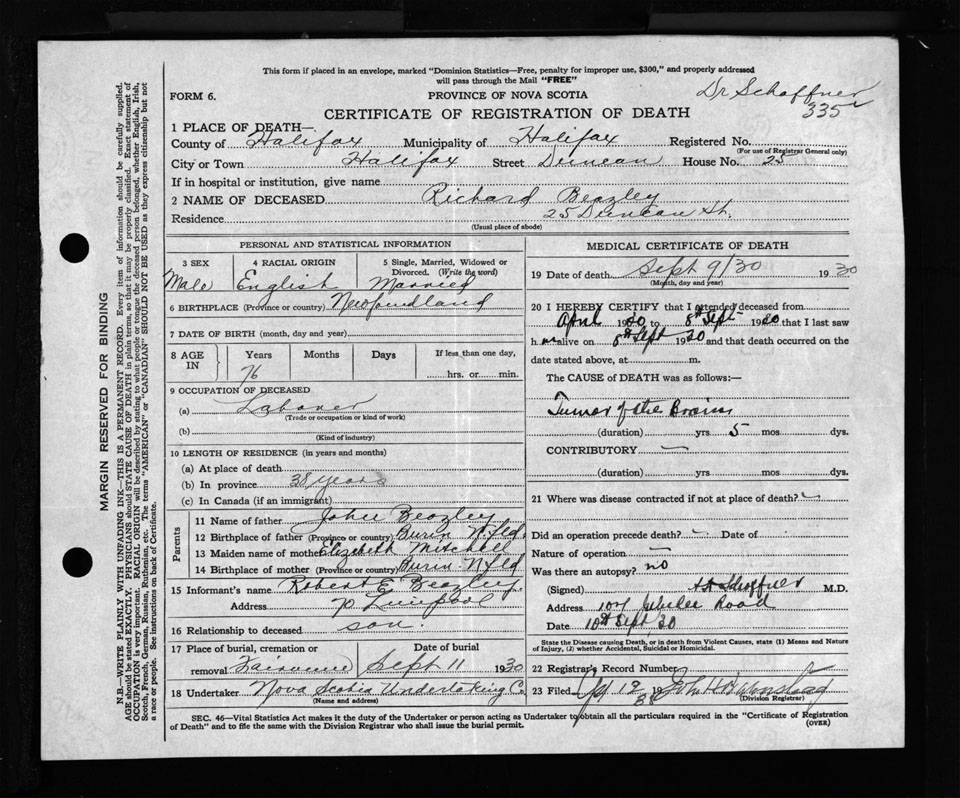 This form if placed in an envelope, marked "Dominion Statistics—Free, penalty for improper use, $300," and properly addressed
will pass through the Mail "FREE"
FORM 6.
PROVINCE OF NOVA SCOTIA
Dr Schaffner
335
CERTIFICATE OF REGISTRATION OF DEATH
1 PLACE OF DEATH—
County of Halifax Municipality of Halifax Registered No.
(For use of Registrar General only)
City or Town Halifax Street Duncan House No. 25
If in hospital or institution, give name
2 NAME OF DECEASED Richard Beazley
Residence 25 Duncan St.
(Usual place of abode)
PERSONAL AND STATISTICAL INFORMATION
3 SEX 4 RACIAL ORIGIN 5 Single, Married, Widowed or
Divorced. (Write the word)
Male English Married
6 BIRTHPLACE (Province or country) Newfoundland
7 DATE OF BIRTH (month, day and year)
8 AGE IN Years Months Days If less than one day,
76 hrs. or min.
9 OCCUPATION OF DECEASED
(a) Laborer
(Trade or occupation or kind of work)
(b)
(Kind of industry)
10 LENGTH OF RESIDENCE (in years and months)
(a) At place of death
(b) In province 38 years
(c) In Canada (if an immigrant)
Parents
11 Name of father John Beazley
12 Birthplace of father (Province or country) Burin Nfld.
13 Maiden name of mother Elizabeth Mitchell
14 Birthplace of mother (Province or country) Burin Nfld
15 Informant's name Robert E Beazley
Address Liverpool
16 Relationship to deceased son.
17 Place of burial, cremation or Date of burial
removal Fairview Sept 11 1930
18 Undertaker Nova Scotia Undertaking Co.
(Name and address)
MEDICAL CERTIFICATE OF DEATH
19 Date of death Sept 9/30 1930
(Month, day and year)
20 I HEREBY CERTIFY that I attended deceased from
April 1930 to 8th Sept 1930 that I last saw
h im alive on 8th Sept 1930 and that death occurred on the
date stated above, at m.
The CAUSE of DEATH was as follows:—
Tumor of the Brain
(duration) yrs 5 mos dys.
CONTRIBUTORY —
(duration) yrs. mos. dys.
21 Where was disease contracted if not at place of death?
Did an operation precede death? — Date of
Nature of operation —
Was there an autopsy? no
(Signed) Schaffner M.D.
Address Jubilee Road
Date 10th Sept 30
State the Disease causing Death, or in death from Violent Causes, state (1) Means and Nature
of Injury, (2) whether Accidental, Suicidal or Homicidal.
22 Registrar's Record Number
23 Filed 12 19 John H Barnstead
(Division Registrar)
SEC. 46—Vital Statistics Act makes it the duty of the Undertaker or person acting as Undertaker to obtain all the particulars required in the "Certificate of Registration
of Death" and to file the same with the Division Registrar who shall issue the burial permit.
(OVER)
MARGIN RESERVED FOR BINDING
N.B.—WRITE PLAINLY WITH UNFADING INK—THIS IS A PERMANENT RECORD. Every item of information should be carefully supplied.
AGE should be stated EXACTLY. PHYSICIANS should STATE CAUSE OF DEATH in plain terms, so that it may be properly classified. Exact statement of
OCCUPATION is very important. RACIAL ORIGIN will be described by stating to what people or tongue the deceased person belonged, whether English, Irish,
Scotch, French, German, Russian, Ruthenian, etc. The terms "AMERICAN" or "CANADIAN" SHOULD NOT BE USED as they express citizenship but not
a race or people. See instructions on back of Certificate.